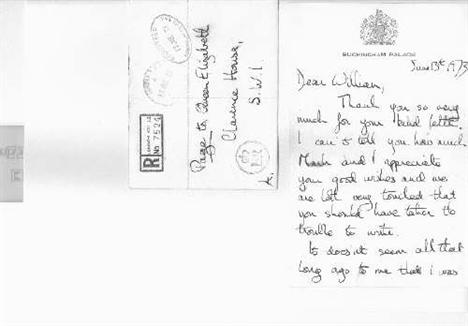 Page to Queen Elizabeth
Clarence House,
S.W.1
R
No 7524
BUCKINGHAM PALACE
June 13th 1973
Dear William,
Thank you so very
much for your kind letter.
I can't tell you how much
Mark and I appreciate
your good wishes and we
are both very touched that
you should have taken the
trouble to write.
It doesn't seem all that
long ago to me that I was